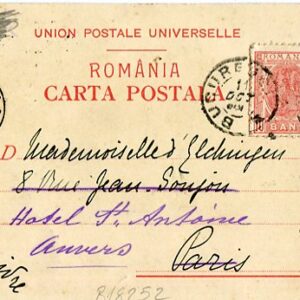 UNION POSTALE UNIVERSELLE
ROMÂNIA
CARTA POSTALA
BUCURESCI
11
OCT
ROMAN
BANI
D Mademoiselle d'Elchingen
8 Rue Jean Goujon
Hotel St. Antoine
Anvers
Paris
R18252